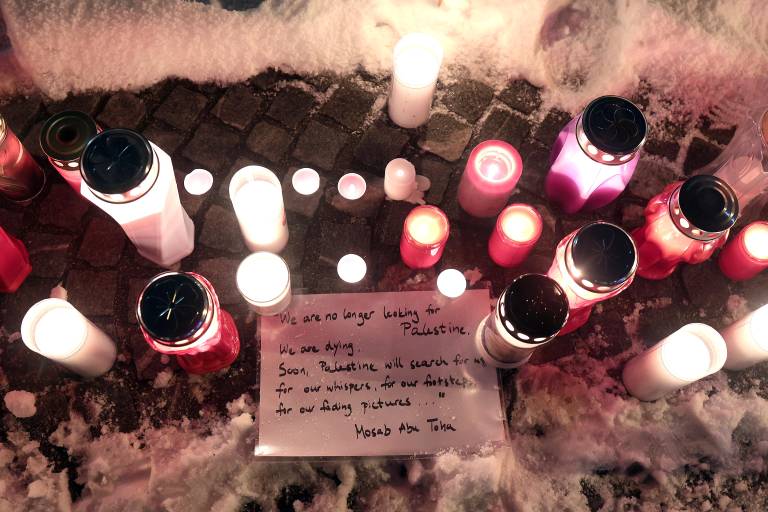 We are no longer looking for
Palestine.
We are dying.
Soon, Palestine will search for us
for our whispers, for our footsteps,
for our fading pictures ..."
Mosab Abu Toha